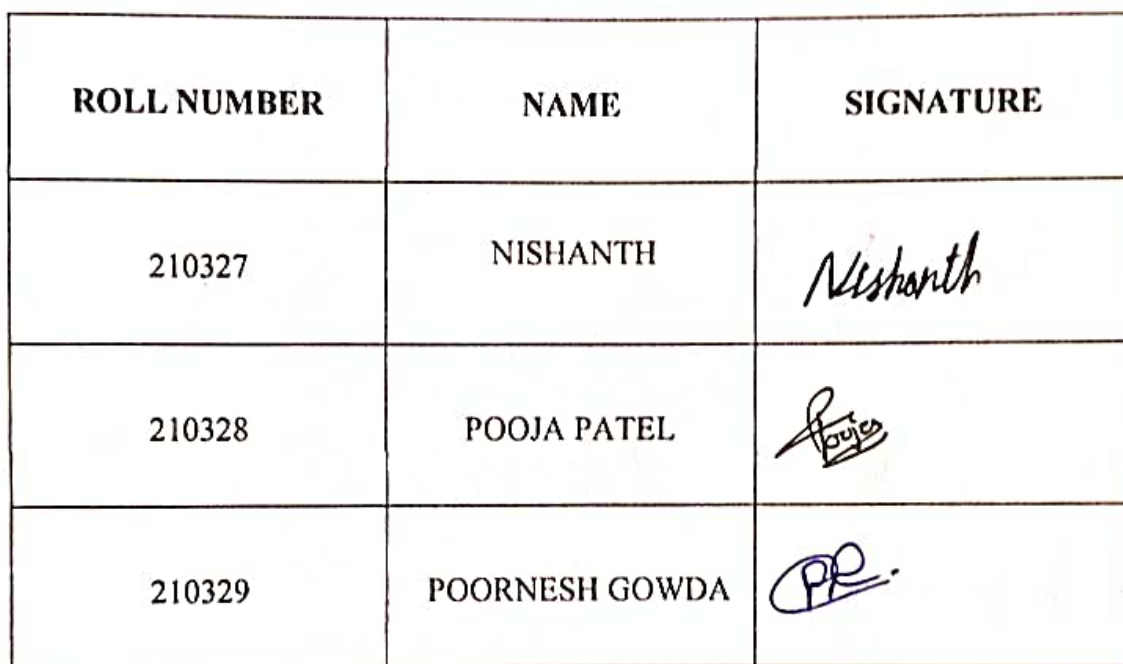 ROLL NUMBER NAME SIGNATURE
210327 NISHANTH Nishanth
210328 POOJA PATEL Pooja
210329 POORNESH GOWDA